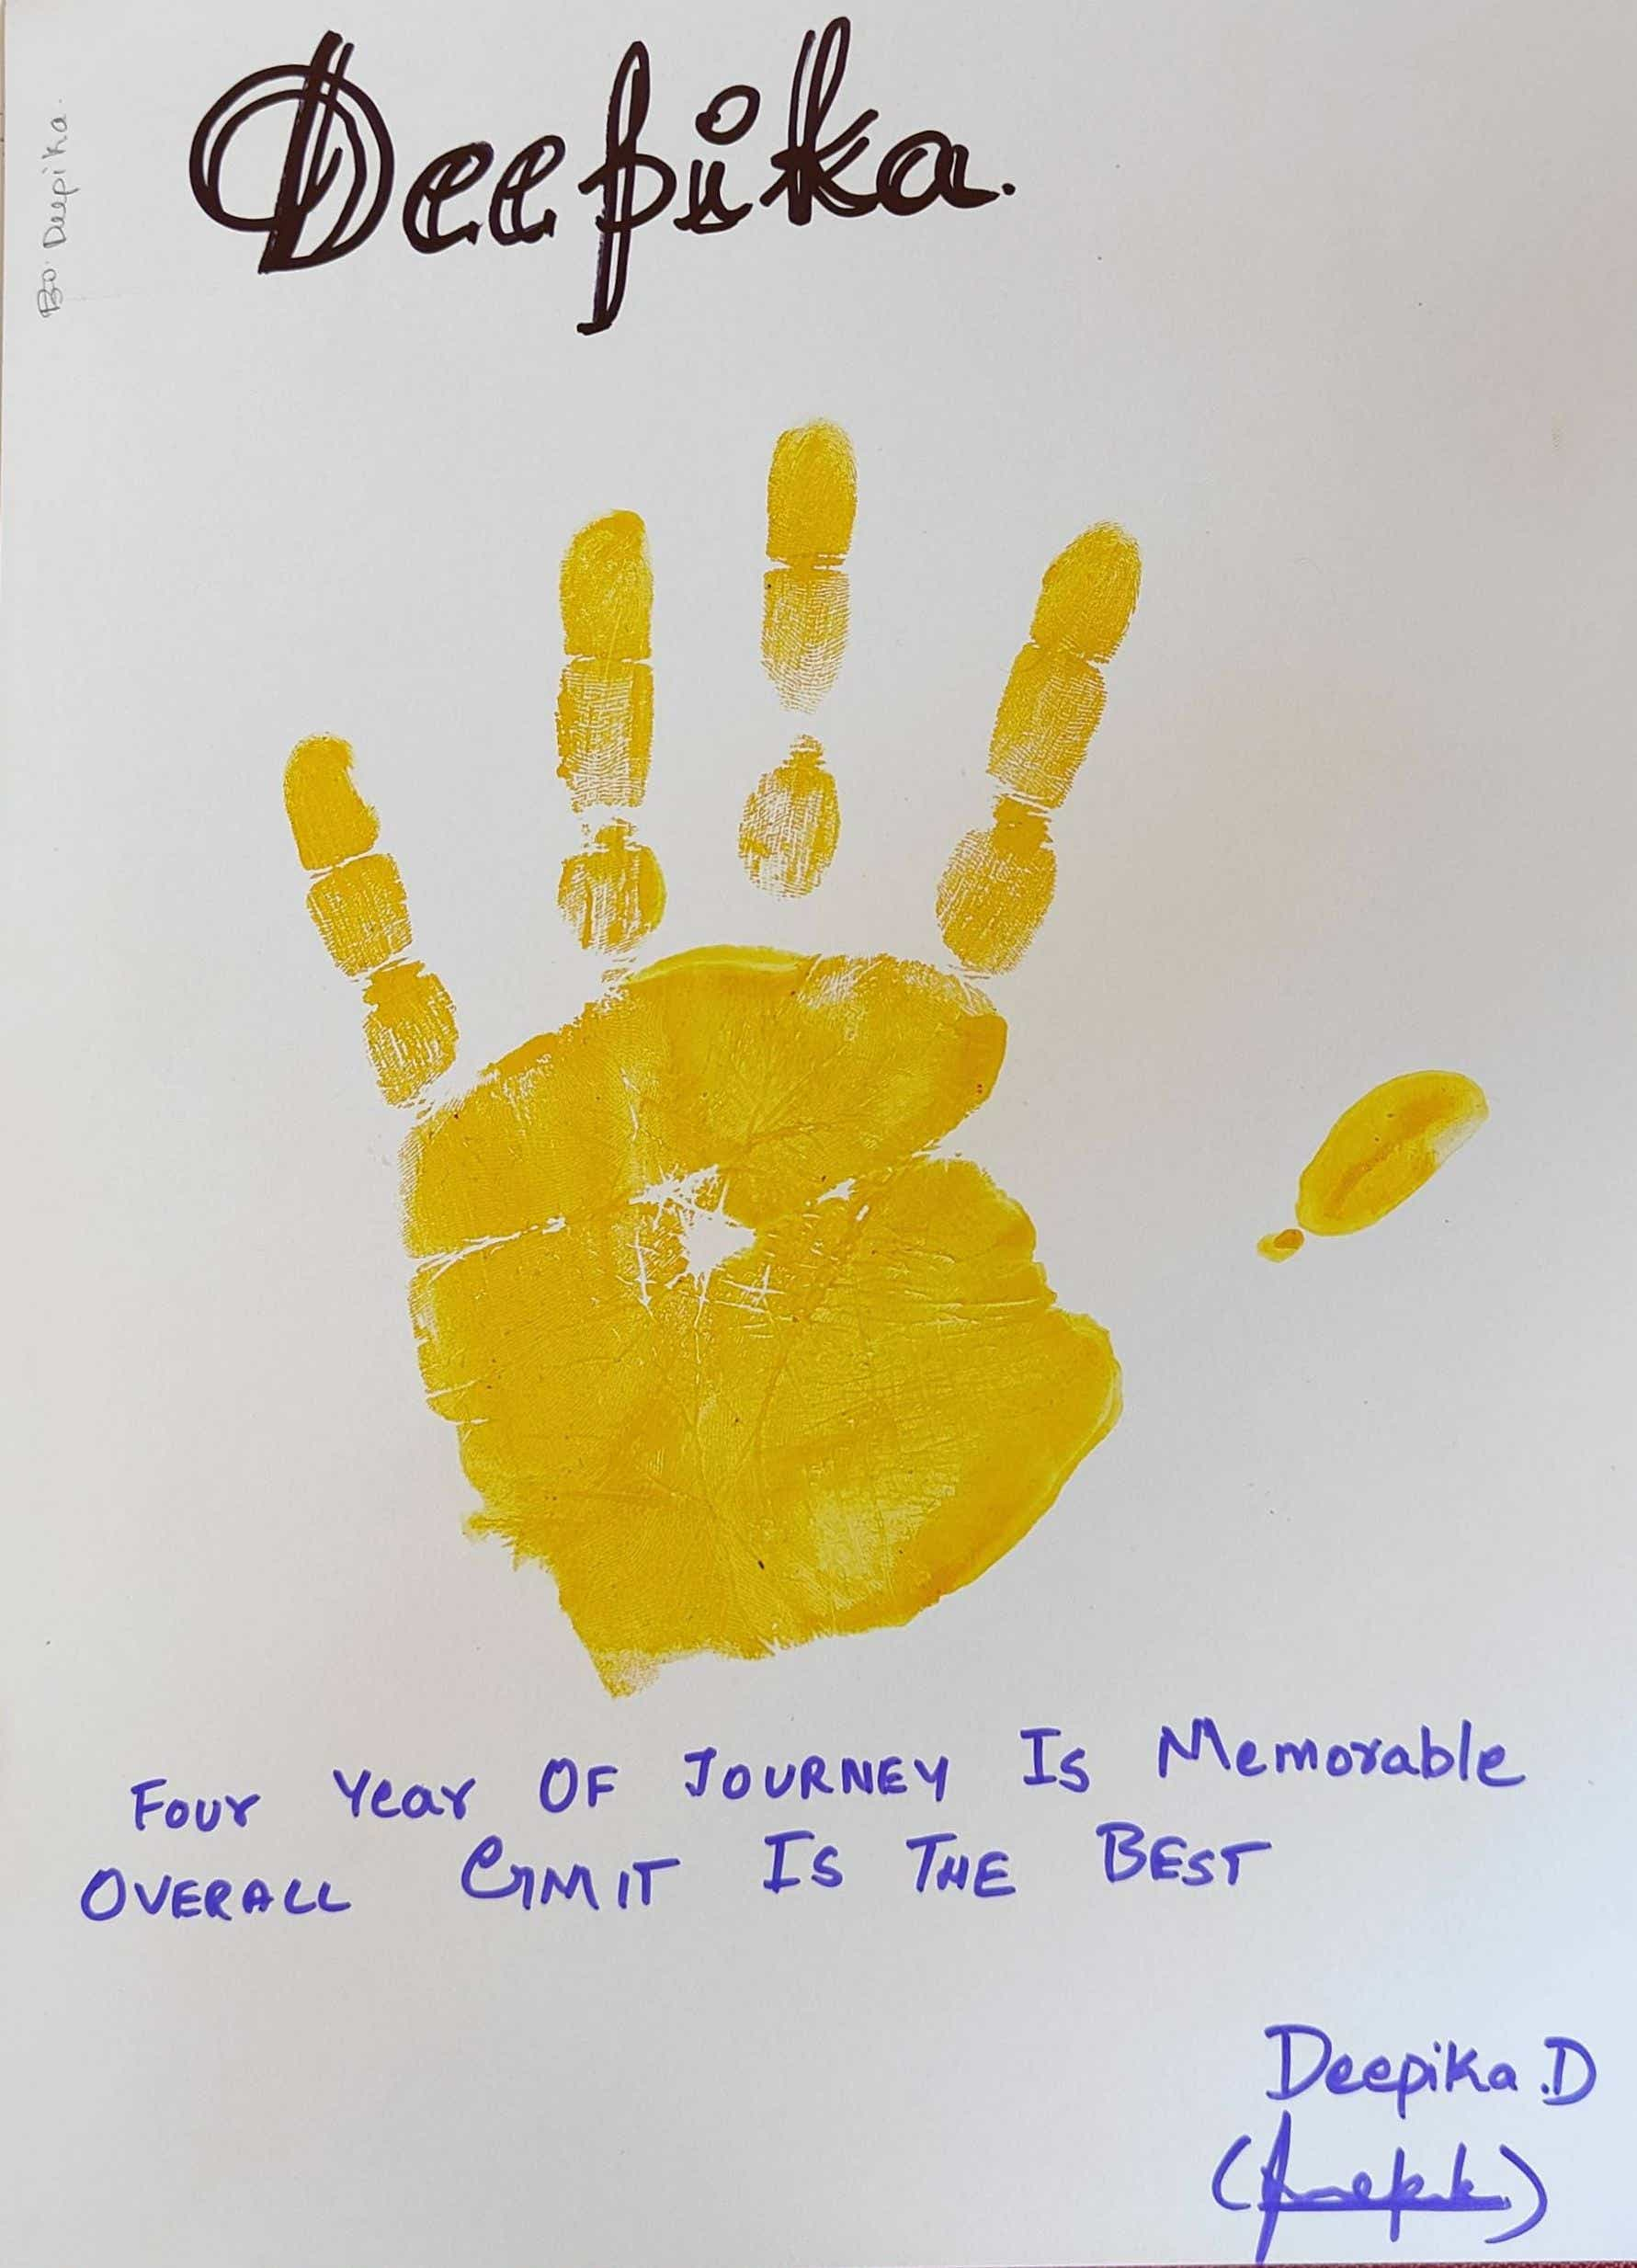 Deepika.
Deepika.
Four Year OF JOURNEY Is Memorable
OVERALL GMIT IS THE BEST
Deepika.D